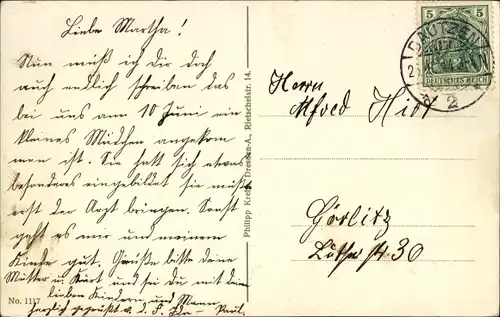 Liebe Martha!
Nun muß ich dir doch
auch endlich schreiben das
bei uns am 10 Juni ein
kleines Mädchen angekom
men ist. Sie hatt sich etwas
besonderes eingebildet sie mußt
erst der Arzt bringen. Sonst
geht es mir und meinem
Kinde gut. Grüße bitte deine
Mutter u. Kurt und sei du mit dein
lieben Kindern und Mann
herzlich gegrüßt v. d. F. Ida - Paul.
No. 1117
Philipp Krebs, Dresden-A., Rietschelstr. 14.
5 5
DEUTSCHES REICH
BAUTZEN
2
Herrn
Alfred
Görlitz
30